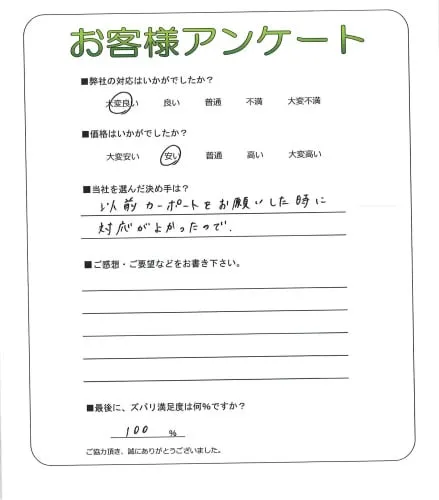 お客様アンケート
■弊社の対応はいかがでしたか?
大変良い 良い 普通 不満 大変不満
■価格はいかがでしたか?
大変安い 安い 普通 高い 大変高い
■当社を選んだ決め手は?
以前カーポートをお願いした時に
対応がよかったので.
■ご感想・ご要望などをお書き下さい。
■最後に、ズバリ満足度は何%ですか?
100 %
ご協力頂き、誠にありがとうございました。